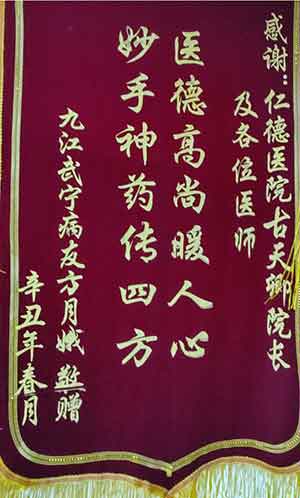 感谢：仁德医院古天卿院长
及各位医师
医德高尚暖人心
妙手神药传四方
九江武宁病友方月娥敬赠
辛丑年春月